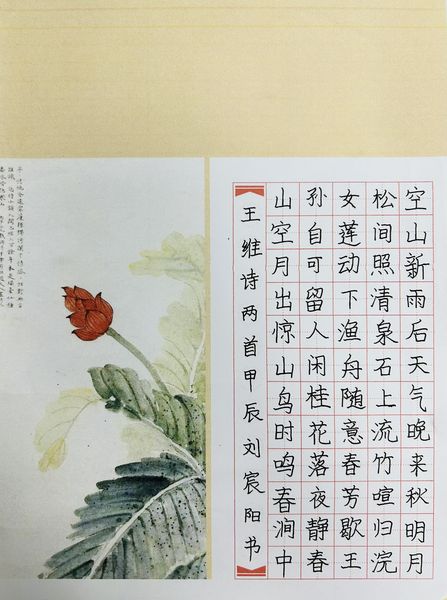 空山新雨后天气晚来秋明月
松间照清泉石上流竹喧归浣
女莲动下渔舟随意春芳歇王
孙自可留人闲桂花落夜静春
山空月出惊山鸟时鸣春涧中
王维诗两首甲辰刘宸阳书